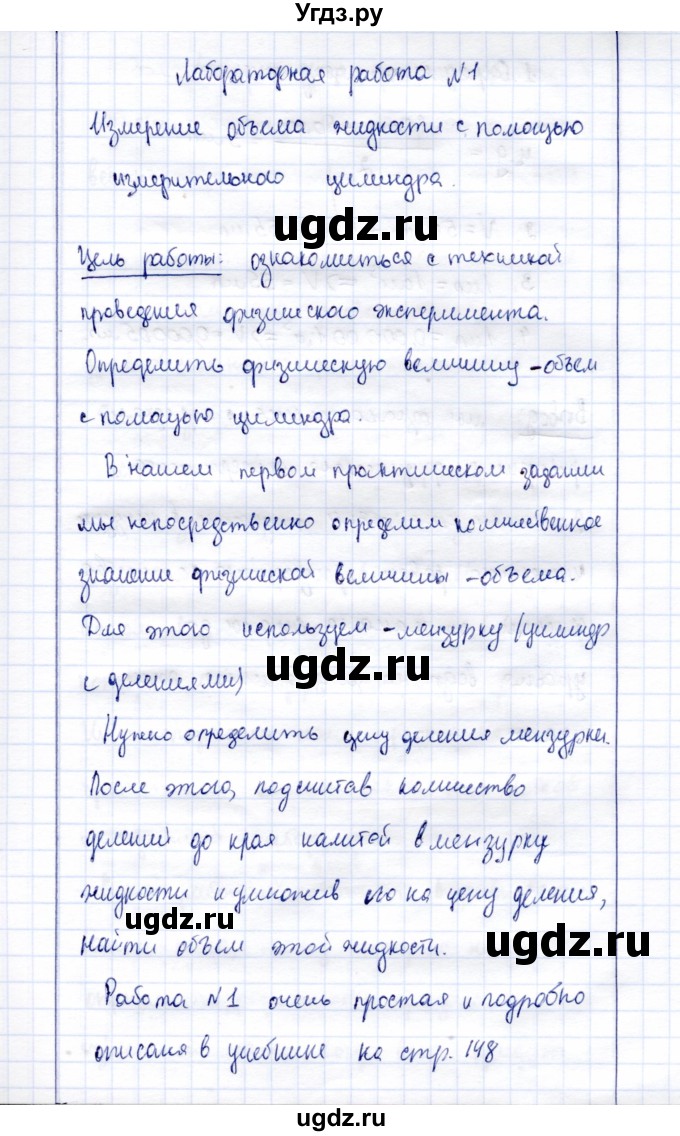 Угдз.ру
Лабораторная работа №1
Измерение объема жидкости с помощью
измерительного цилиндра.
ugdz.ru
Цель работы: ознакомиться с техникой
проведения физического эксперимента.
Определить физическую величину - объем
с помощью цилиндра.
В нашем первом практическом задании
мы непосредственно определим количественное
значение физической величины - объема.
Для этого используем - мензурку (цилиндр
с делениями)
ugdz.ru
Нужно определить цену деления мензурки.
После этого, подсчитав количество
делений до края налитой в мензурку
жидкости и умножив его на цену деления,
ugdz.ru
ugdz.ru
найти объем этой жидкости.
Работа №1 очень простая и подробно
описана в учебнике на стр. 148
ugdz.ru